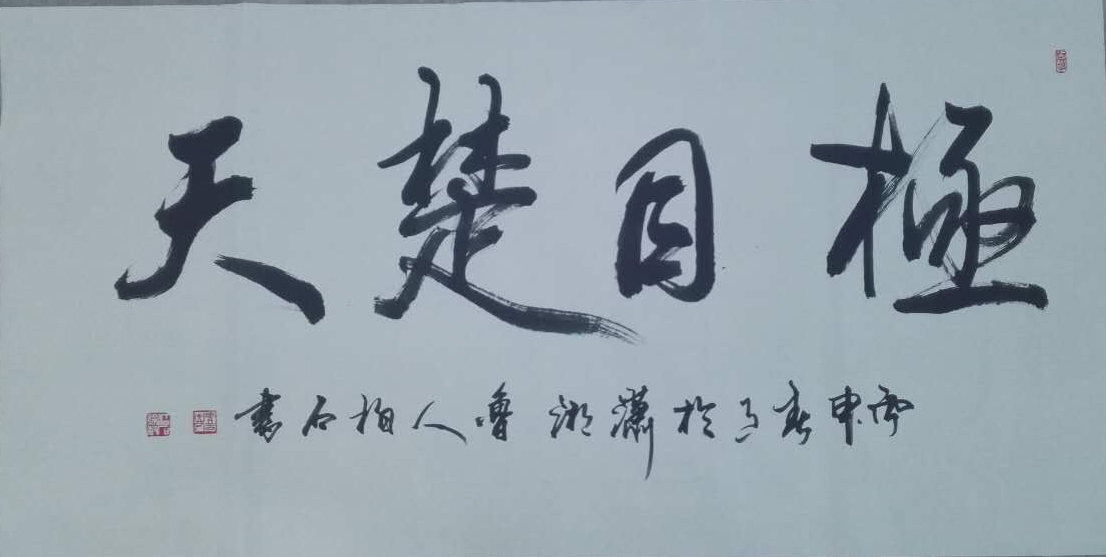 極目楚天
丙申春月於瀟湘魯人柏石書